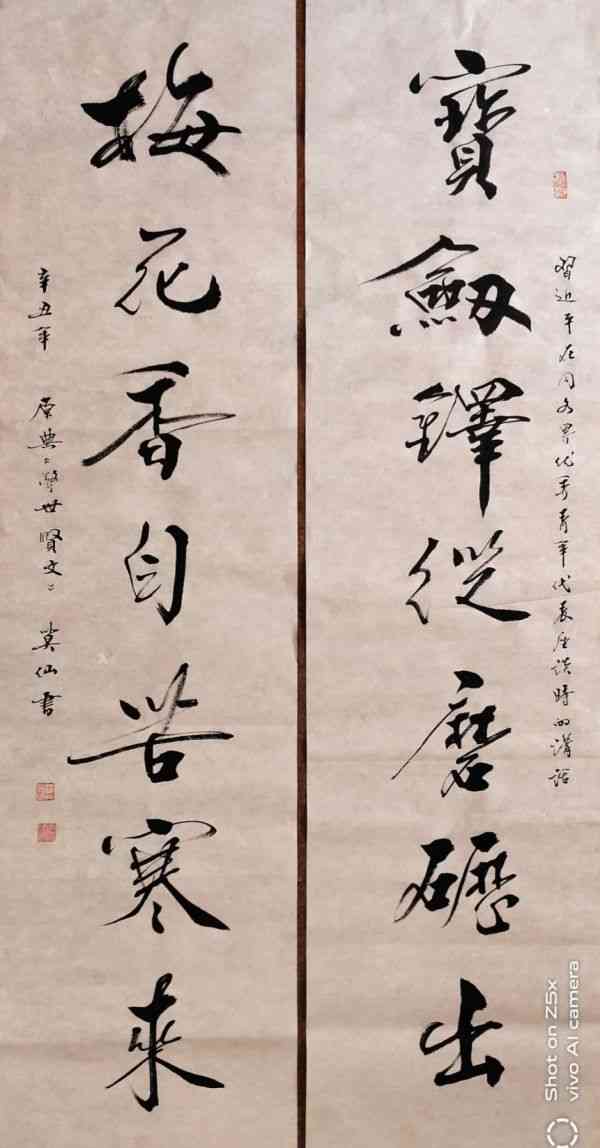 寶劒鋒從磨礪出
習近平在同各界优秀青年代表座談時的講話
梅花香自苦寒來
辛丑年 原典：警世賢文： 莫仙書
Shot on Z5x
vivo AI camera